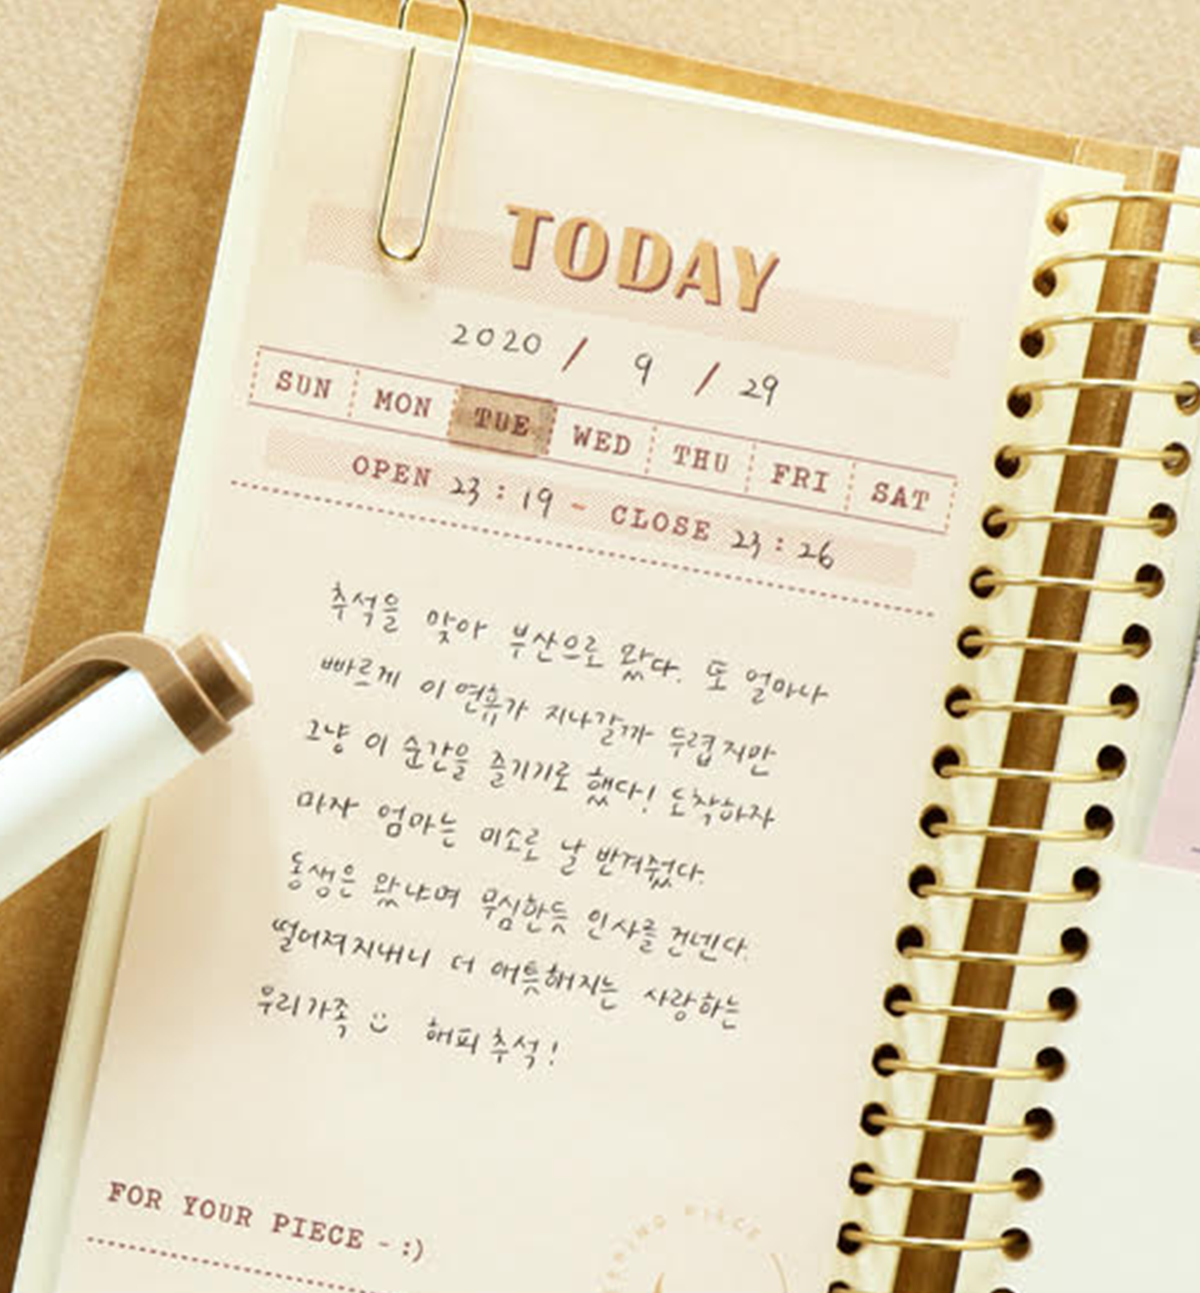 TODAY
2020 / 9 / 29
SUN MON TUE WED THU FRI SAT
OPEN 23 : 19 - CLOSE 23 : 26
추석을 맞아 부산으로 왔다. 또 얼마나
빠르게 이 연휴가 지나갈까 두렵지만
그냥 이 순간을 즐기기로 했다! 도착하자
마자 엄마는 미소로 날 반겨줬다.
동생은 왔냐며 무심한듯 인사를 건넨다.
떨어져지내니 더 애틋해지는 사랑하는
우리가족 :) 해피 추석!
FOR YOUR PIECE - :)
PIECE